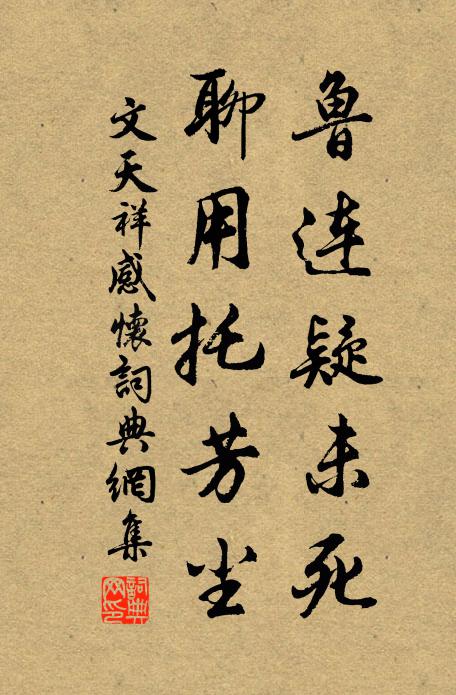 鲁连疑未死
聊用托芳尘
文天祥感懷詞典網集
詞典
网印